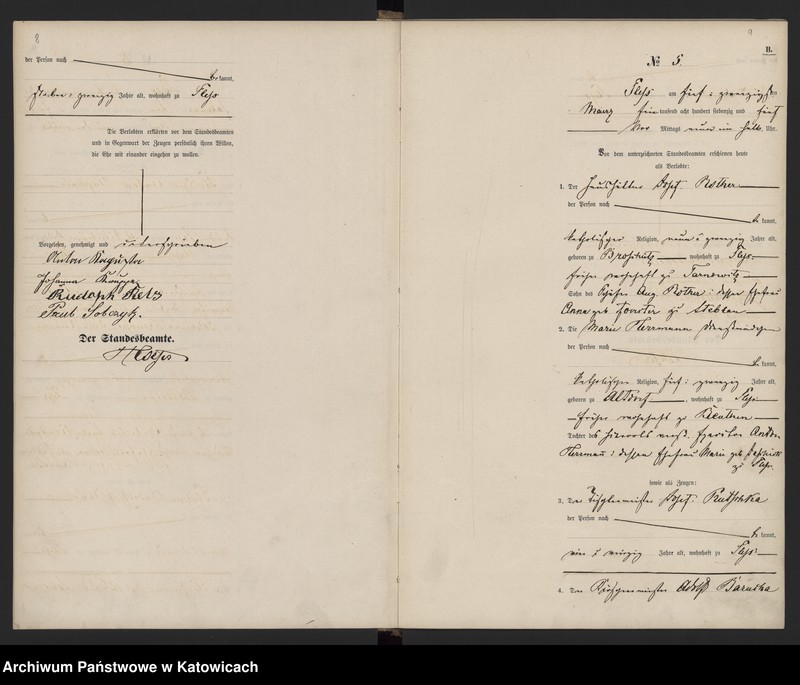 8
der Person nach
bekannt,
sieben u zwanzig Jahre alt, wohnhaft zu Pless
Die Verlobten erklärten vor dem Standesbeamten
und in Gegenwart der Zeugen persönlich ihren Willen,
die Ehe mit einander eingehen zu wollen.
Vorgelesen, genehmigt und unterschrieben
Anton
Johanna
Rudolph
Paul Sobczyk.
Der Standesbeamte.
9
B.
№ 5.
Pless am fünf u zwanzigsten
März eintausend acht hundert siebenzig und fünf
Vor Mittags neun ein halb Uhr.
Vor dem unterzeichneten Standesbeamten erschienen heute
als Verlobte:
1. Der Haushälter Josef Rother
der Person nach
bekannt,
katholischer Religion, neun u zwanzig Jahre alt,
geboren zu wohnhaft zu Pless
früher wohnhaft zu Tarnowitz
Sohn des Aug. Rother u dessen Ehefrau
Anna geb zu Steblau
2. Die Marie Herrmann Dienstmädchen
der Person nach
bekannt,
katholischer Religion, fünf u zwanzig Jahre alt,
geboren zu Altdorf, wohnhaft zu Pless
früher wohnhaft zu
Tochter des verst. Anton
Herrmann u dessen Ehefrau Marie geb
zu Pless
sowie als Zeugen:
3. Der Tischlermeister Josef
der Person nach
bekannt,
Jahre alt, wohnhaft zu Pless
4. Der Adolf Baruska